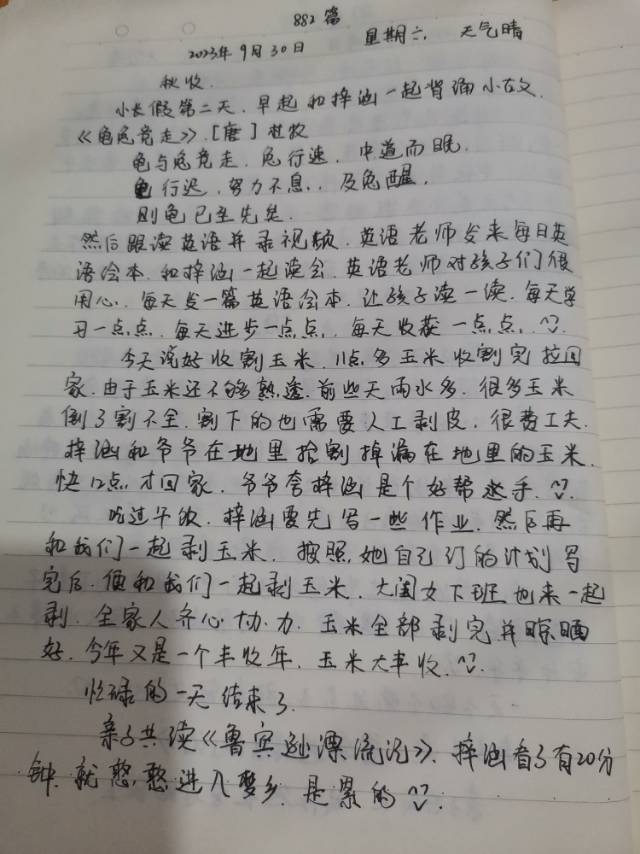 882篇
2023年9月30日 星期六 天气晴
秋收.
小长假第二天.早起和梓涵一起背诵小古文.
《龟兔竞走》.[唐]杜牧
龟与兔竞走.兔行速.中道而眠.
龟行迟.努力不息..及兔醒.
则龟已至先矣.
然后跟读英语并录视频.英语老师发来每日英
语绘本.和梓涵一起读会.英语老师对孩子们很
用心.每天发一篇英语绘本.让孩子读一读.每天学
习一点点.每天进步一点点.每天收获一点点.
今天说好收割玉米.11点多玉米收割完拉回
家.由于玉米还不够熟透.前些天雨水多.很多玉米
倒了割不全.割下的也需要人工剥皮.很费工夫.
梓涵和爷爷在地里捡割掉漏在地里的玉米.
快12点才回家.爷爷夸梓涵是个好帮手.
吃过午饭.梓涵要先写一些作业.然后再
和我们一起剥玉米.按照她自己订的计划写
完后.便和我们一起剥玉米.大闺女下班也来一起
剥.全家人齐心协力.玉米全部剥完并晾晒
好.今年又是一个丰收年.玉米大丰收.
忙碌的一天结束了.
亲子共读《鲁宾逊漂流记》.梓涵看了有20分
钟.就憨憨进入梦乡.是累的